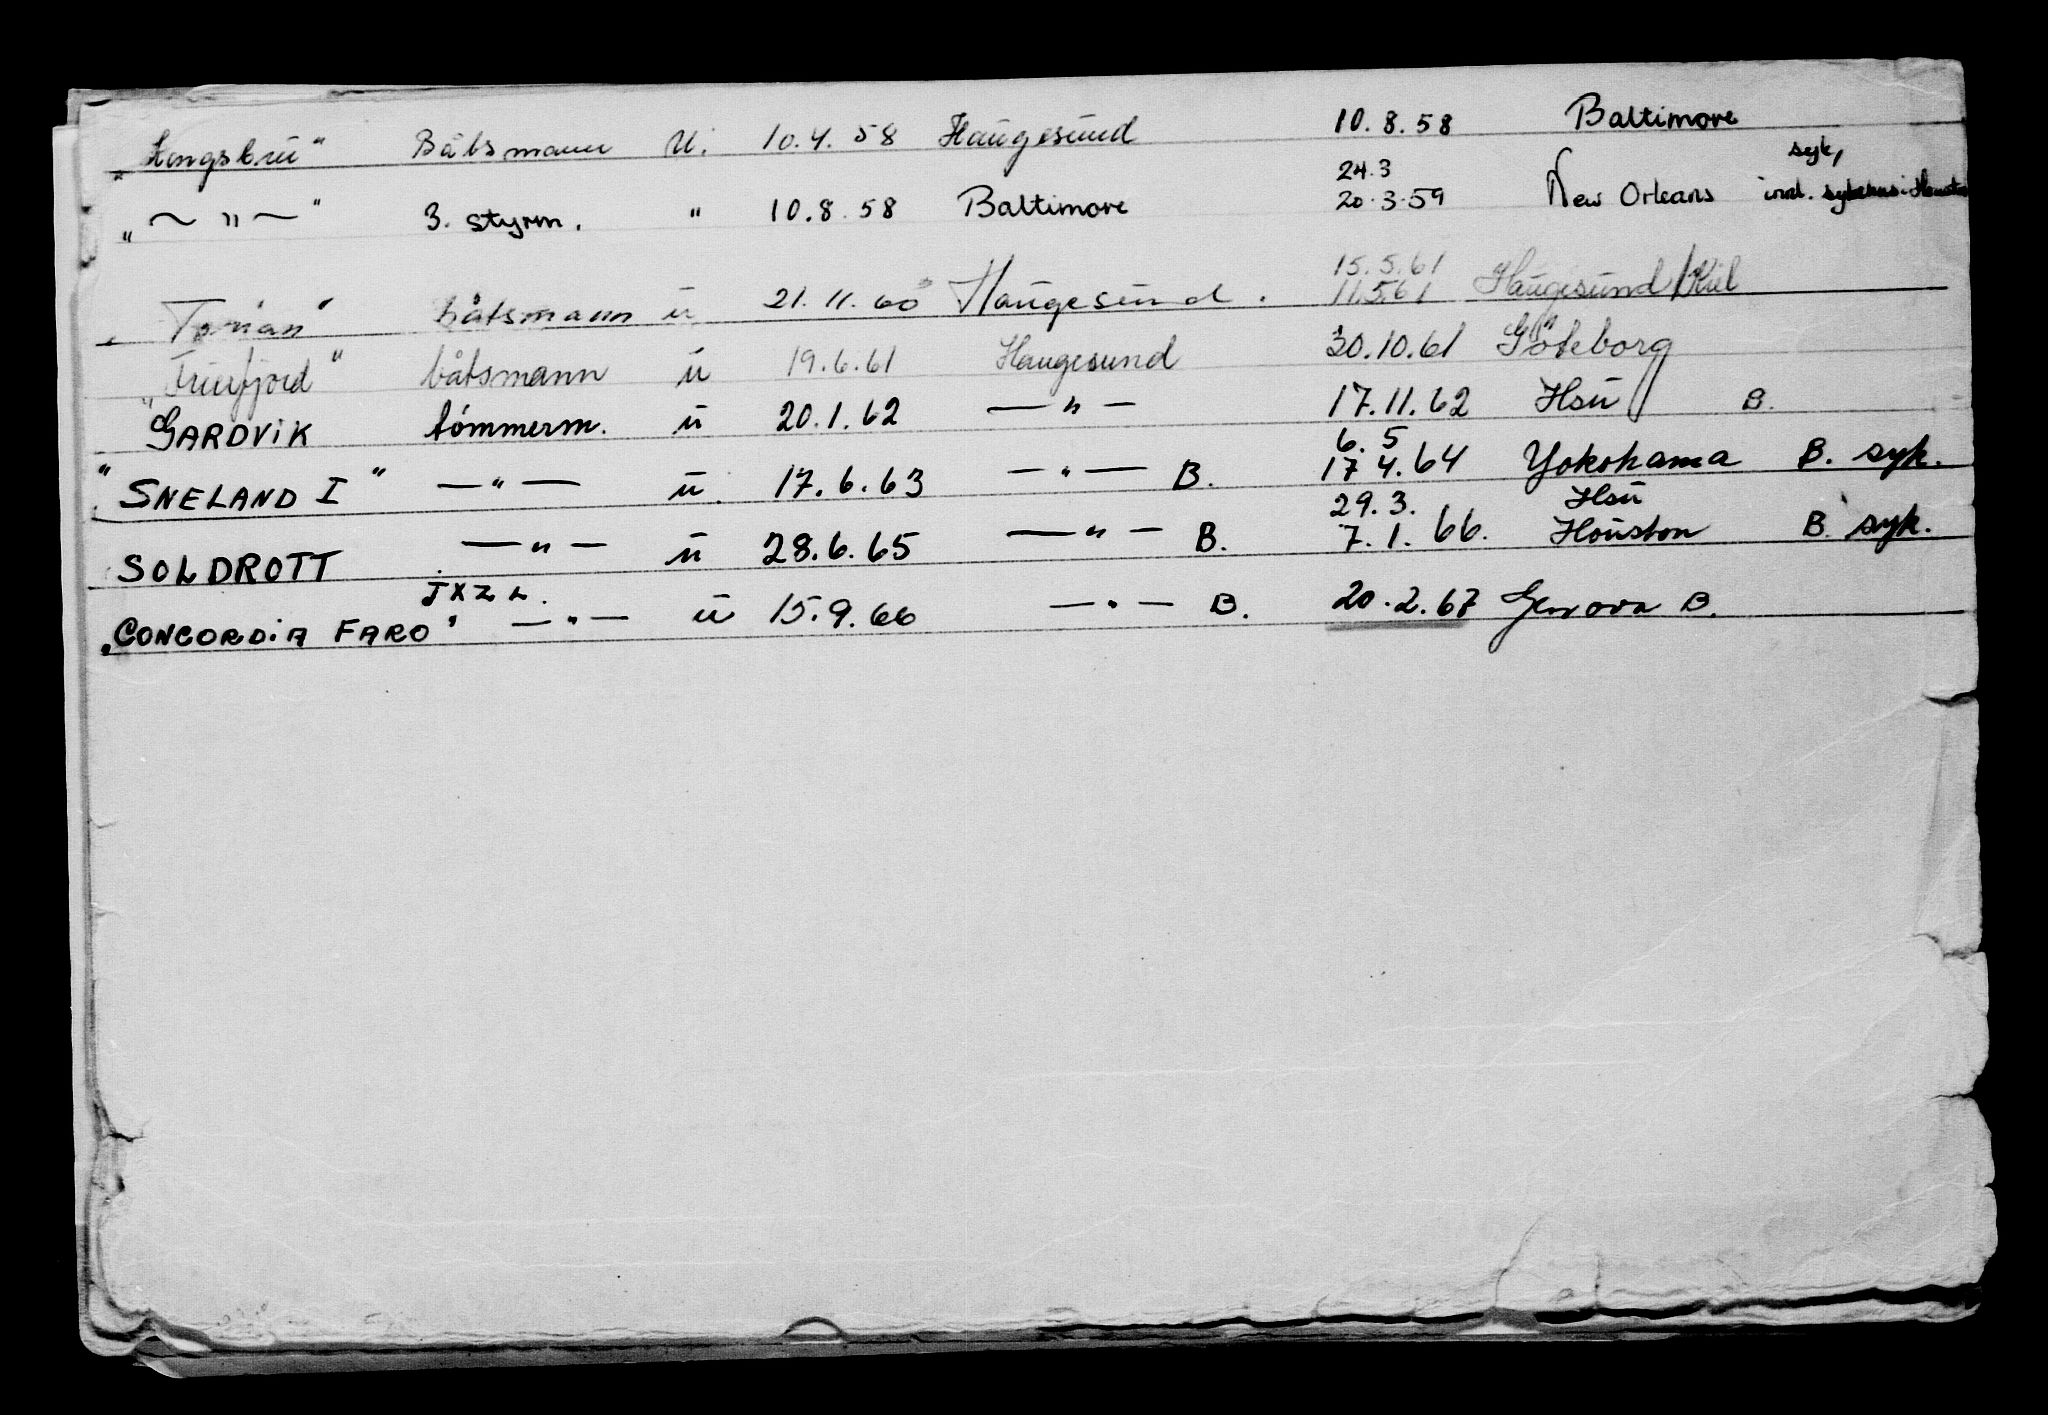 "Kongsbru" Båtsmann U. 10.4.58 Haugesund 10.8.58 Baltimore
syk,
" ~ " ~ " 3. styrm. " 10.8.58 Baltimore 24.3 20.3.59 New Orleans innl. sykehus i Houston
"Torian" båtsmann u 21.11.60 Haugesund. 15.5.61 11.5.61 Haugesund/Kiel
"Frierfjord" båtsmann u 19.6.61 Haugesund 30.10.61 Göteborg
GARDVIK tømmerm. u 20.1.62 — " — 17.11.62 Hsu B.
"SNELAND I" — " — u. 17.6.63 — " — B. 6.5 17 4.64 Yokohama B. syk.
29.3. Hsu
SOLDROTT — " — u 28.6.65 — " — B. 7.1.66. Houston B. syk.
JXZL.
"CONCORDIA FARO" — " — u 15.9.66 — " — B. 20.2.67 Genova B.